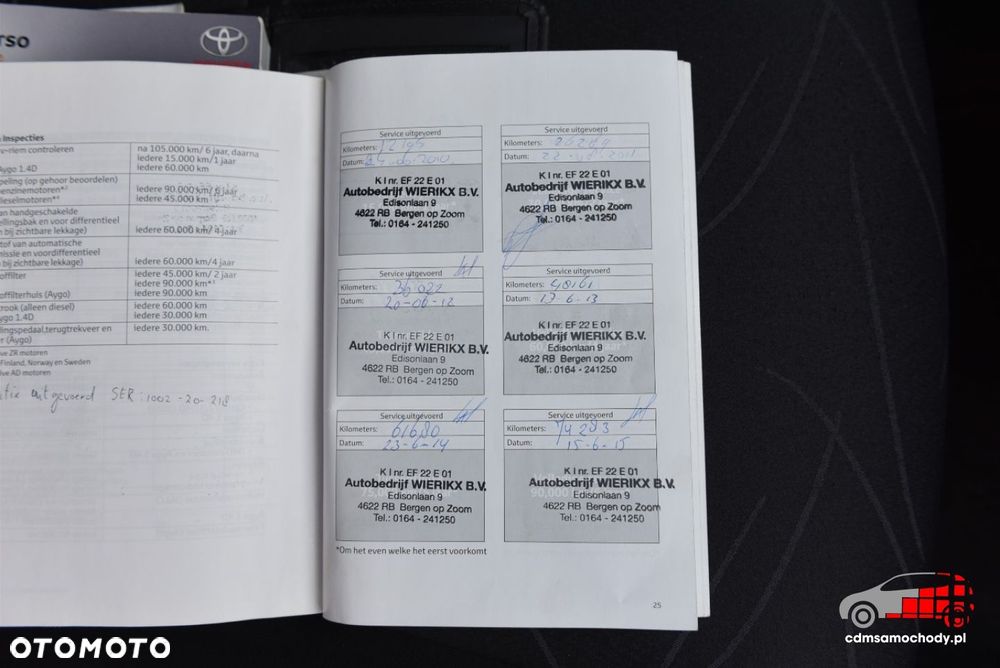 rso
Inspecties
v-riem controleren
na 105.000 km/ 6 jaar, daarna
iedere 15.000 km/1 jaar
Aygo 1.4D
iedere 60.000 km
peling (op gehoor beoordelen)
benzinemotoren*²
iedere 90.000 km/ 6 jaar
dieselmotoren*³
iedere 45.000 km
an handgeschakelde
ellingsbak en voor differentieel
n bij zichtbare lekkage)
iedere 60.000 km/ 4 jaar
tof van automatische
missie en voordifferentieel
n bij zichtbare lekkage)
iedere 60.000 km/4 jaar
offilter
iedere 45.000 km/ 2 jaar
iedere 90.000 km*³
offilterhuis (Aygo)
iedere 90.000 km
rook (alleen diesel)
iedere 60.000 km
ygo 1.4D
iedere 30.000 km
lingspedaal,terugtrekveer en
iedere 30.000 km.
r (Aygo)
ve ZR motoren
Finland, Norway en Sweden
ve AD motoren
uitgevoerd SER: 1002-20-218
Service uitgevoerd
Kilometers: 12195
Datum:
K I nr. EF 22 E 01
Autobedrijf WIERIKX B.V.
Edisonlaan 9
4622 RB Bergen op Zoom
Tel.: 0164 - 241250
Service uitgevoerd
Kilometers:
Datum:
K I nr. EF 22 E 01
Autobedrijf WIERIKX B.V.
Edisonlaan 9
4622 RB Bergen op Zoom
Tel.: 0164 - 241250
Service uitgevoerd
Kilometers: 36022
Datum: 20-06-12
K I nr. EF 22 E 01
Autobedrijf WIERIKX B.V.
Edisonlaan 9
4622 RB Bergen op Zoom
Tel.: 0164 - 241250
Service uitgevoerd
Kilometers: 48161
Datum: 17-6-13
K I nr. EF 22 E 01
Autobedrijf WIERIKX B.V.
Edisonlaan 9
4622 RB Bergen op Zoom
Tel.: 0164 - 241250
Service uitgevoerd
Kilometers: 61680
Datum: 23-6-14
K I nr. EF 22 E 01
Autobedrijf WIERIKX B.V.
Edisonlaan 9
4622 RB Bergen op Zoom
Tel.: 0164 - 241250
Service uitgevoerd
Kilometers: 74283
Datum: 15-6-15
K I nr. EF 22 E 01
Autobedrijf WIERIKX B.V.
Edisonlaan 9
4622 RB Bergen op Zoom
Tel.: 0164 - 241250
*Om het even welke het eerst voorkomt
25
OTOMOTO
cdmsamochody.pl